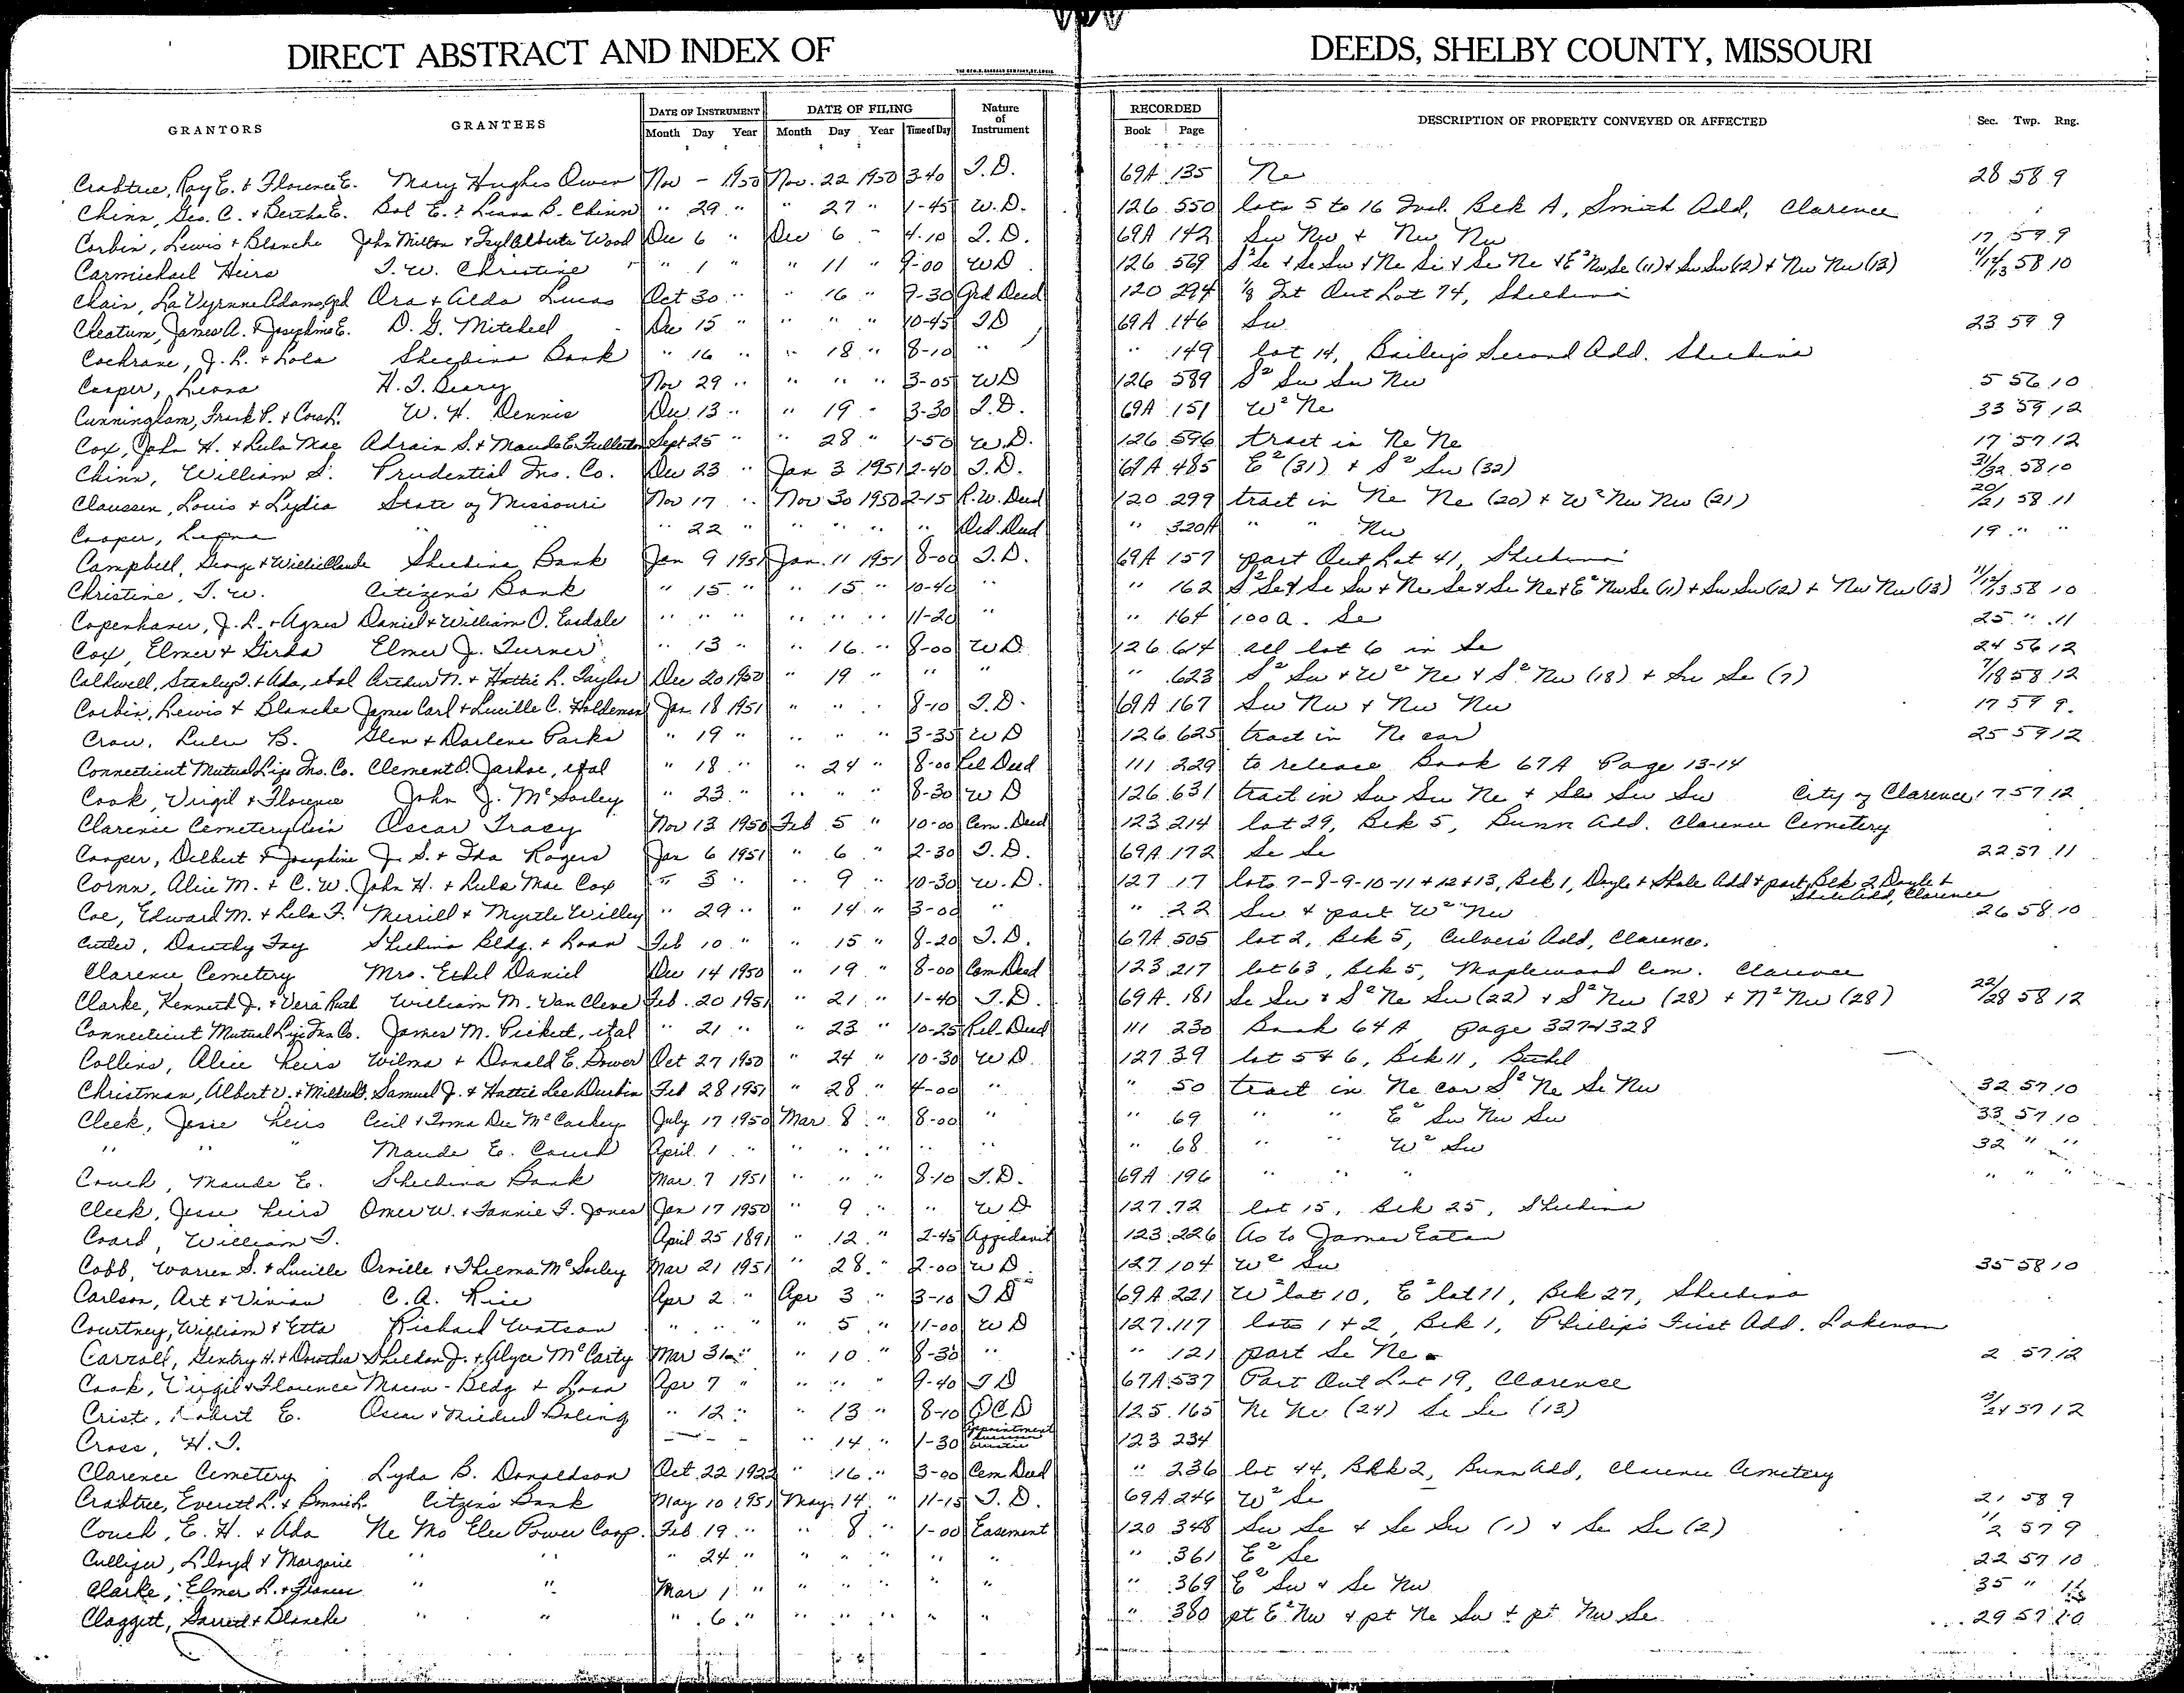 DIRECT ABSTRACT AND INDEX OF DEEDS, SHELBY COUNTY, MISSOURI
GRANTORS GRANTEES DATE OF INSTRUMENT DATE OF FILING Nature of Instrument RECORDED DESCRIPTION OF PROPERTY CONVEYED OR AFFECTED Sec. Twp. Rng.
Month Day Year Month Day Year Time of Day Book Page
Crabtree, Ray E. & Florence E. Mary Hughes Owen Nov - 1950 Nov. 22 1950 3-40 T.D. 69A 135 Ne 28 58 9
Chinn, Geo. C. & Bertha E. Bob E. & Leana B. Chinn " 29 " " 27 " 1-45 W.D. 126 550 lots 5 to 16 Incl. Blk A, Smith Add, Clarence
Corbin, Lewis & Blanche John Milton & Alberta Wood Dec 6 " Dec 6 " 4-10 T.D. 69A 142 Sw Nw & Nw Nw 17 59 9
Carmichael Heirs T. W. Christine " 1 " " 11 " 9-00 WD 126 569 S² Se & Se Sw & Ne Se & Se Ne & E² Nw Se (11) & Sw Sw (12) & Nw Nw (13) 11/12/13 58 10
Clair, La Vyrnne Adams, Gd Ora & Alda Lucas Oct 30 " " 16 " 9-30 Grd Deed 120 294 1/8 Int Out Lot 74, Shelbina
Cleatum, James A. & Josephine E. D. G. Mitchell Dec 15 " " " " 10-45 TD 69A 146 Sw 23 59 9
Cochrane, J. L. & Lola Shelbina Bank " 16 " " 18 " 8-10 " " 149 lot 14, Bailey's Second Add. Shelbina
Cooper, Leona H. T. Deary Nov 29 " " " " 3-05 WD 126 589 S² Sw Sw Nw 5 56 10
Cunningham, Frank P. & Cora L. W. H. Dennis Dec 13 " " 19 " 3-30 T.D. 69A 151 W² Ne 33 59 12
Cox, John H. & Lula Mae Adrain S. & Maude E. Fullerton Sept 25 " " 28 " 1-50 W.D. 126 596 tract in Ne Ne 17 57 12
Chinn, William S. Prudential Ins. Co. Dec 23 " Jan 3 1951 2-40 T.D. 67A 485 E² (31) & S² Sw (32) 31/32 58 10
Claussen, Louis & Lydia State of Missouri Nov 17 " Nov 30 1950 2-15 R.W. Deed 120 299 tract in Ne Ne (20) & W² Nw Nw (21) 20/21 58 11
Cooper, " " " 22 " " " " " Ded. Deed " 320A " " Nw 19 " "
Campbell, George & Willie Maude Shelbina Bank Jan 9 1951 Jan. 11 1951 8-00 T.D. 69A 157 part Out Lot 41, Shelbina
Christine, T. W. Citizen's Bank " 15 " " 15 " 10-40 " " 162 S² Se & Se Sw & Ne Se & Se Ne & E² Nw Se (11) & Sw Sw (12) & Nw Nw (13) 11/12/13 58 10
Copenhaver, J. L. & Agnes Daniel & William O. Easdale " " " " " " 11-20 " " 164 100 a. Se 25 " 11
Cox, Elmer & Girda Elmer J. Turner " 13 " " 16 " 8-00 WD 126 614 all lot 6 in Se 24 56 12
Caldwell, Stanley T. & Ada, etal Arthur N. & Hattie L. Taylor Dec 20 1950 " 19 " " " " 623 S² Sw & W² Ne & S² Nw (18) & Sw Se (7) 7/18 58 12
Corbin, Lewis & Blanche James Carl & Lucille C. Holdeman Jan 18 1951 " " " 8-10 T.D. 69A 167 Sw Nw & Nw Nw 17 59 9
Crow, Lulu B. Glen & Darlene Parks " 19 " " " " 3-35 WD 126 625 tract in Ne cor 25 59 12
Connecticut Mutual Life Ins. Co. Clement O. Jarboe, etal " 18 " " 24 " 8-00 Rel Deed 111 229 to release Book 67A Page 13-14
Cook, Virgil & Florence John J. McSorley " 23 " " " " 8-30 WD 126 631 tract in Sw Sw Ne & Se Sw Sw City of Clarence 17 57 12
Clarence Cemetery Ass'n Oscar Tracy Nov 13 1950 Feb 5 " 10-00 Cem. Deed 123 214 lot 29, Blk 5, Bunn Add. Clarence Cemetery
Cooper, Delbert & Josephine J. S. & Ida Rogers Jan 6 1951 " 6 " 2-30 T.D. 69A 172 Se Se 22 57 11
Cornn, Alice M. & C. W. John H. & Lula Mae Cox " 3 " " 9 " 10-30 W.D. 127 17 lots 7-8-9-10-11 & 12 & 13, Blk 1, Doyle & Shale Add & part Blk 2 Doyle & Shale Add, Clarence
Coe, Edward M. & Lela F. Merrill & Myrtle Willey " 29 " " 14 " 3-00 " " 22 Sw & part W² Nw 26 58 10
Cutler, Dorothy Fay Shelbina Bldg. & Loan Feb 10 " " 15 " 8-20 T.D. 67A 505 lot 2, Blk 5, Culver's Add, Clarence.
Clarence Cemetery Mrs. Ethel Daniel Dec 14 1950 " 19 " 8-00 Cem Deed 123 217 lot 63, Blk 5, Maplewood Cem. Clarence
Clarke, Kenneth J. & Vera Ruth William M. Van Cleve Feb. 20 1951 " 21 " 1-40 T.D. 69A 181 Se Sw & S² Ne Sw (22) & S² Nw (28) & N² Nw (28) 22/28 58 12
Connecticut Mutual Life Ins Co. James M. Pickett, etal " 21 " " 23 " 10-25 Rel. Deed 111 230 Book 64A page 327-328
Collins, Alice heirs Wilma & Donald E. Dower Oct 27 1950 " 24 " 10-30 WD 127 39 lot 5 & 6, Blk 11, Bethel
Christman, Albert V. & Mildred Samuel J. & Hattie Lee Durbin Feb 28 1951 " 28 " 4-00 " " 50 tract in Ne cor S² Ne Se Nw 32 57 10
Cleek, Jesse heirs Cecil & Toma Dee McCaskey July 17 1950 Mar 8 " 8-00 " " 69 " " E² Sw Nw Sw 33 57 10
" " " Maude E. Couch April 1 " " " " " " " 68 " " W² Sw 32 " "
Couch, Maude E. Shelbina Bank Mar. 7 1951 " " " 8-10 T.D. 69A 196 " " " " " "
Cleek, Jesse heirs Omer W. & Fannie F. Jones Jan 17 1950 " 9 " " WD 127 72 lot 15, Blk 25, Shelbina
Coard, William T. April 25 1891 " 12 " 2-45 Affidavit 123 226 As to James Eaton
Cobb, Warren S. & Lucille Orville & Thelma McSorley Mar 21 1951 " 28 " 2-00 WD 127 104 W² Sw 35 58 10
Carlson, Art & Vivian C. A. Rice Apr 2 " Apr 3 " 3-10 TD 69A 221 W² lot 10, E² lot 11, Blk 27, Shelbina
Courtney, William & Etta Richard Watson " " " " 5 " 11-00 WD 127 117 lots 1 & 2, Blk 1, Philip's First Add. Lakenan
Carroll, Gentry H. & Dorothea Sheldon J. & Alyce McCarty Mar 31 " " 10 " 8-30 " " 121 part Se Ne 2 57 12
Cook, Virgil & Florence Macon-Bldg & Loan Apr 7 " " " " 9-40 TD 67A 537 Part Out Lot 19, Clarence
Crist, Robert E. Oscar & Mildred Boling " 12 " " 13 " 8-10 QCD 125 165 Ne Ne (24) Se Se (13) 13/24 57 12
Cross, H. T. - - - " 14 " 1-30 Appointment Trustee 123 234
Clarence Cemetery Lyda B. Donaldson Oct. 22 1922 " 16 " 3-00 Cem Deed " 236 lot 44, Blk 2, Bunn Add, Clarence Cemetery
Crabtree, Everett L. & Bonnie L. Citizen's Bank May 10 1951 May 14 " 11-15 T.D. 69A 246 W² Se 21 58 9
Couch, E. H. & Ada Ne Mo Elec Power Coop. Feb 19 " " 8 " 1-00 Easement 120 348 Sw Se & Se Sw (1) & Se Se (2) 1/2 57 9
Culliger, Lloyd & Margarie " " " 24 " " " " " " " 361 E² Se 22 57 10
Clarke, Elmer L. & Frances " " Mar 1 " " " " " " " 369 E² Sw & Se Nw 35 "
Claggett, Garrett & Blanche " " " 6 " " " " " " " 380 pt E² Nw & pt Ne Sw & pt Nw Se 29 57 10